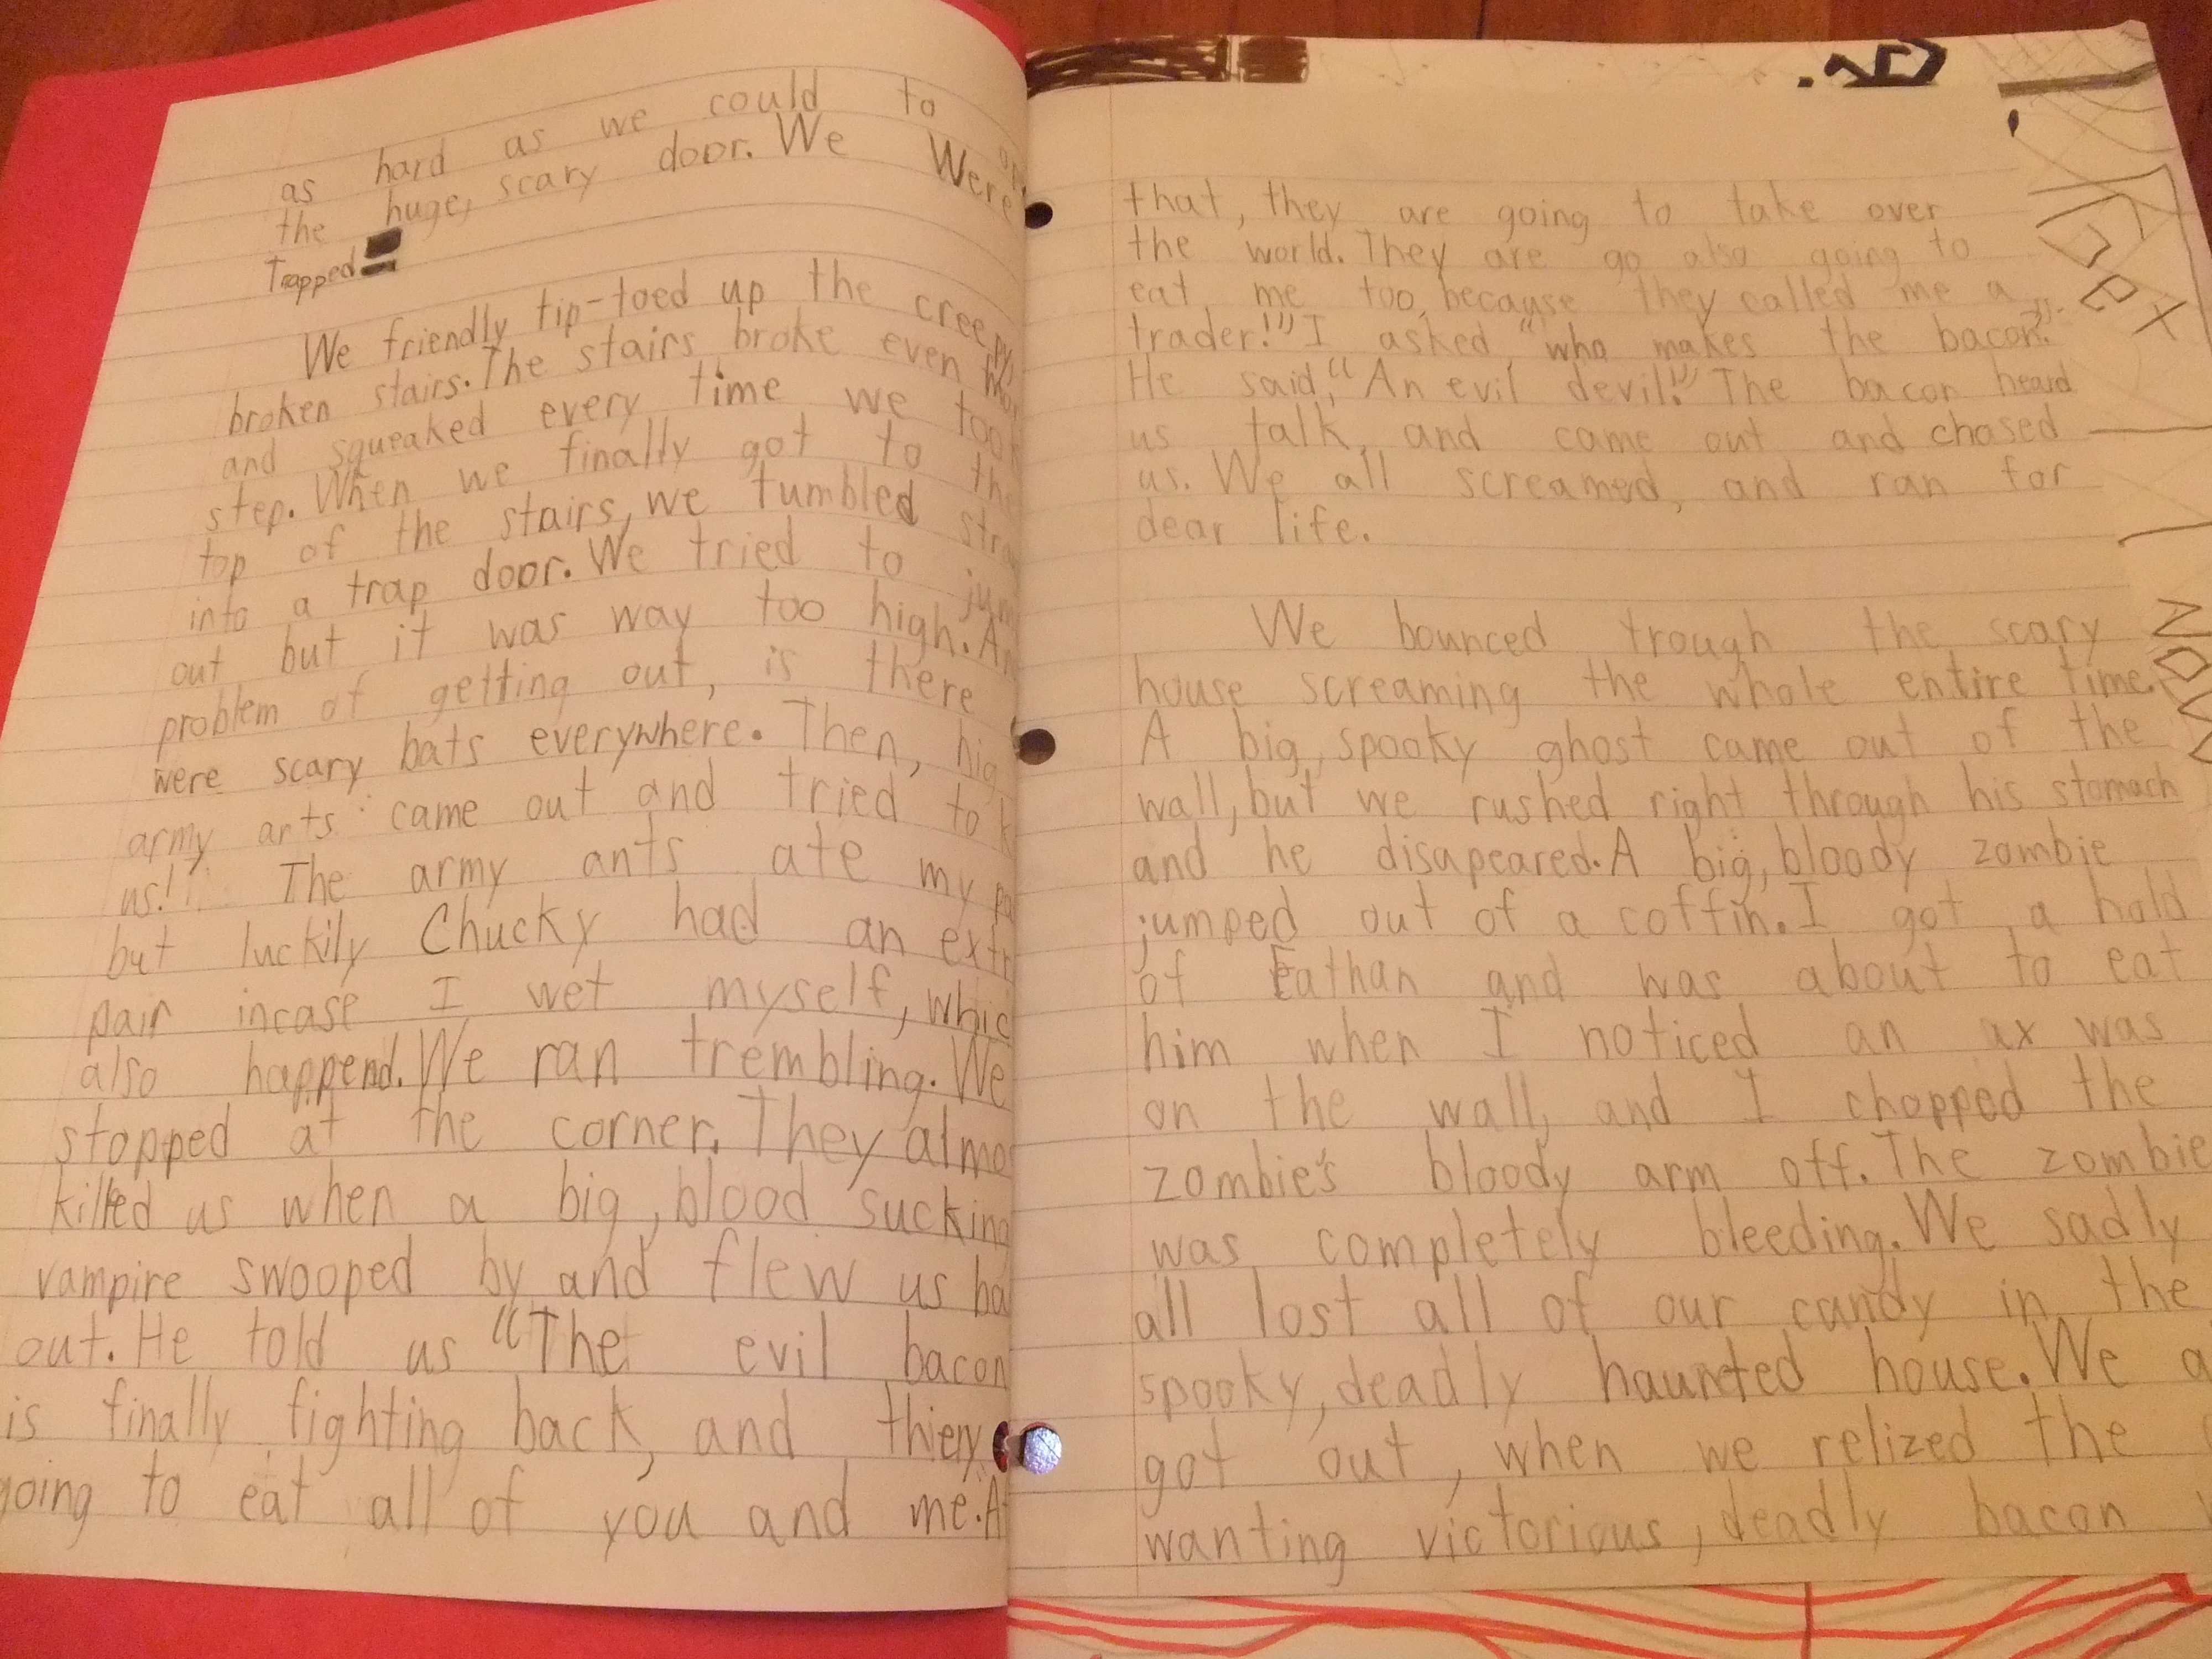 as hard as we could to
the huge, scary door. We Were
Trapped
We friendly tip-toed up the creepy,
broken stairs. The stairs broke even
and squeaked every time we took
step. When we finally got to the
top of the stairs, we tumbled
into a trap door. We tried to
out but it was way too high.
problem of getting out, is there
were scary bats everywhere. Then,
army ants came out and tried to
us! The army ants ate my
but luckily Chucky had an
pair incase I wet myself,
also happend. We ran trembling. We
stopped at the corner. They
killed us when a big, blood sucking
vampire swooped by and flew us
out. He told us "The evil bacon
is finally fighting back, and
going to eat all of you and me.
that, they are going to take over
the world. They are go also going to
eat me too, because they called me a
trader!" I asked, "who makes the bacon."
He said, "An evil devil!" The bacon heard
us talk, and came out and chased
us. We all screamed, and ran for
dear life.
We bounced trough the scary
house screaming the whole entire time.
A big, spooky ghost came out of the
wall, but we rushed right through his stomach
and he disapeared. A big, bloody zombie
jumped out of a coffin. I got a hold
of Eathan and was about to eat
him when I noticed an ax was
on the wall, and I chopped the
zombie's bloody arm off. The zombie
was completely bleeding. We sadly
all lost all of our candy in the
spooky, deadly haunted house. We
got out, when we relized the
wanting victorious, deadly bacon